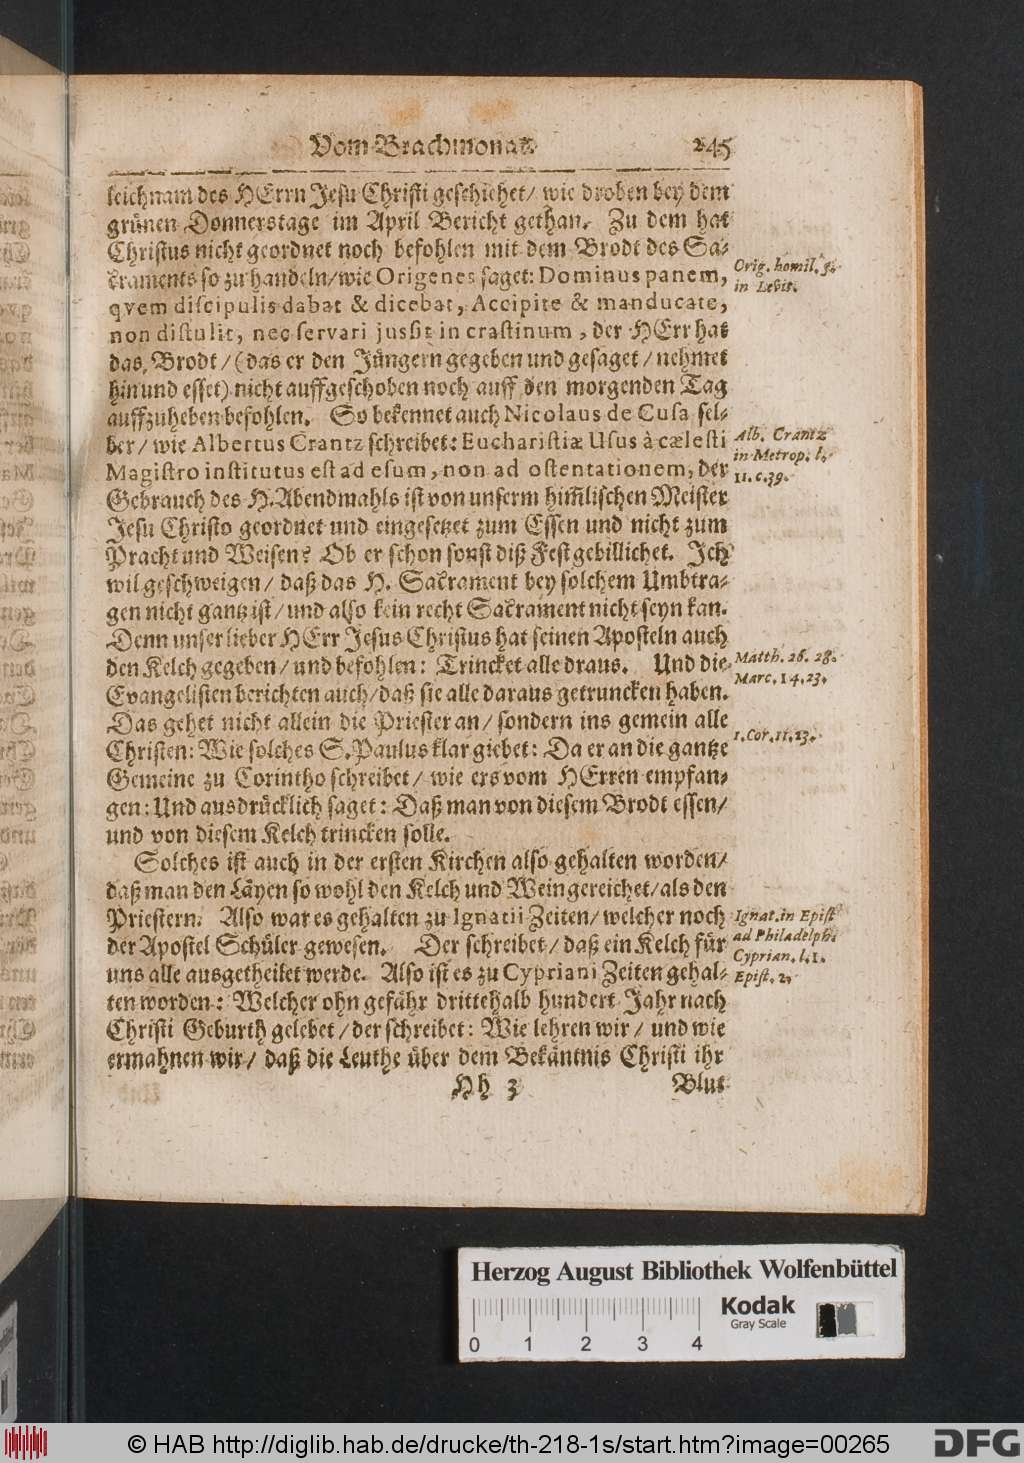 Vom Brachmonat. 245
leichnam des HErrn Jesu Christi geschiehet/ wie droben bey dem
grünen Donnerstage im April Bericht gethan. Zu dem hat
Christus nicht geordnet noch befohlen mit dem Brodt des Sa-
craments so zu handeln/ wie Origenes saget: Dominus panem,
qvem discipulis dabat & dicebat, Accipite & manducate,
non distulit, nec servari jussit in crastinum, der HErr hat
das Brodt/ (das er den Jüngern gegeben und gesaget/ nehmet
hin und esset) nicht auffgeschoben noch auff den morgenden Tag
auffzuheben befohlen. So bekennet auch Nicolaus de Cusa sel-
ber/ wie Albertus Crantz schreibet: Eucharistiæ Usus à cælesti
Magistro institutus est ad esum, non ad ostentationem, der
Gebrauch des H. Abendmahls ist von unserm him̃lischen Meister
Jesu Christo geordnet und eingesetzet zum Essen und nicht zum
Pracht und Weisen? Ob er schon sonst diß Fest gebillichet. Ich
wil geschweigen/ daß das H. Sacrament bey solchem Umbtra-
gen nicht gantz ist/ und also kein recht Sacrament nicht seyn kan.
Denn unser lieber HErr Jesus Christus hat seinen Aposteln auch
den Kelch gegeben/ und befohlen: Trincket alle draus. Und die
Evangelisten berichten auch/ daß sie alle daraus getruncken haben.
Das gehet nicht allein die Priester an/ sondern ins gemein alle
Christen: Wie solches S. Paulus klar giebet: Da er an die gantze
Gemeine zu Corintho schreibet/ wie ers vom HErren empfan-
gen: Und ausdrücklich saget: Daß man von diesem Brodt essen/
und von diesem Kelch trincken solle.
Solches ist auch in der ersten Kirchen also gehalten worden/
daß man den Läyen so wohl den Kelch und Wein gereichet/ als den
Priestern. Also war es gehalten zu Ignatii Zeiten/ welcher noch
der Apostel Schüler gewesen. Der schreibet/ daß ein Kelch für
uns alle ausgetheilet werde. Also ist es zu Cypriani Zeiten gehal-
ten worden: Welcher ohn gefähr drittehalb hundert Jahr nach
Christi Geburth gelebet/ der schreibet: Wie lehren wir/ und wie
ermahnen wir/ daß die Leuthe über dem Bekäntnis Christi ihr
Hh 3 Blut
Orig. homil. 5.
in Levit.
Alb. Crantz
in Metrop. l.
11. c. 39.
Matth. 26. 28.
Marc. 14. 23.
1. Cor. 11. 23.
Ignat. in Epist
ad Philadelph.
Cyprian. l. 1.
Epist. 2.
Herzog August Bibliothek Wolfenbüttel
Kodak
Gray Scale
0 1 2 3 4
© HAB http://diglib.hab.de/drucke/th-218-1s/start.htm?image=00265
DFG